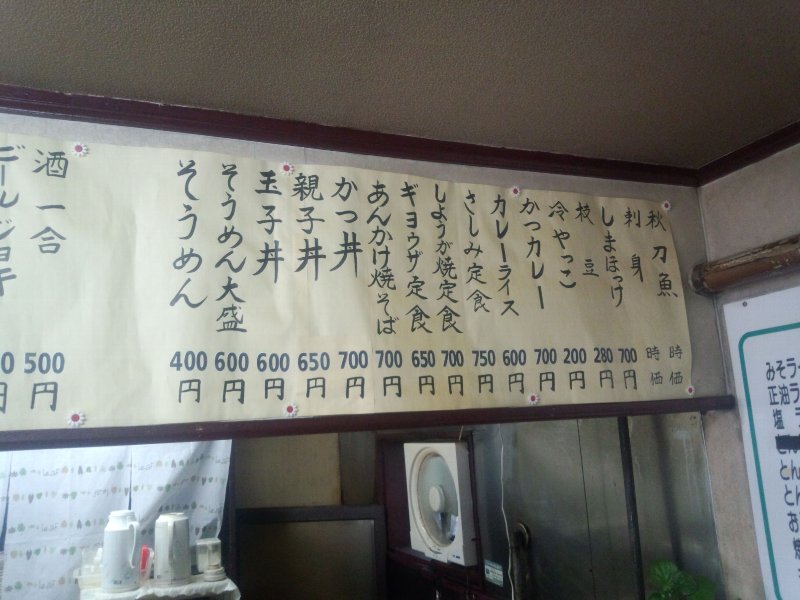 秋刀魚 時価
刺身 時価
しまほっけ 700円
枝豆 280円
冷やっこ 200円
かつカレー 700円
カレーライス 600円
さしみ定食 750円
しょうが焼定食 700円
ギョウザ定食 650円
あんかけ焼そば 700円
かつ丼 700円
親子丼 650円
玉子丼 600円
そうめん大盛 600円
そうめん 400円
酒一合 500円